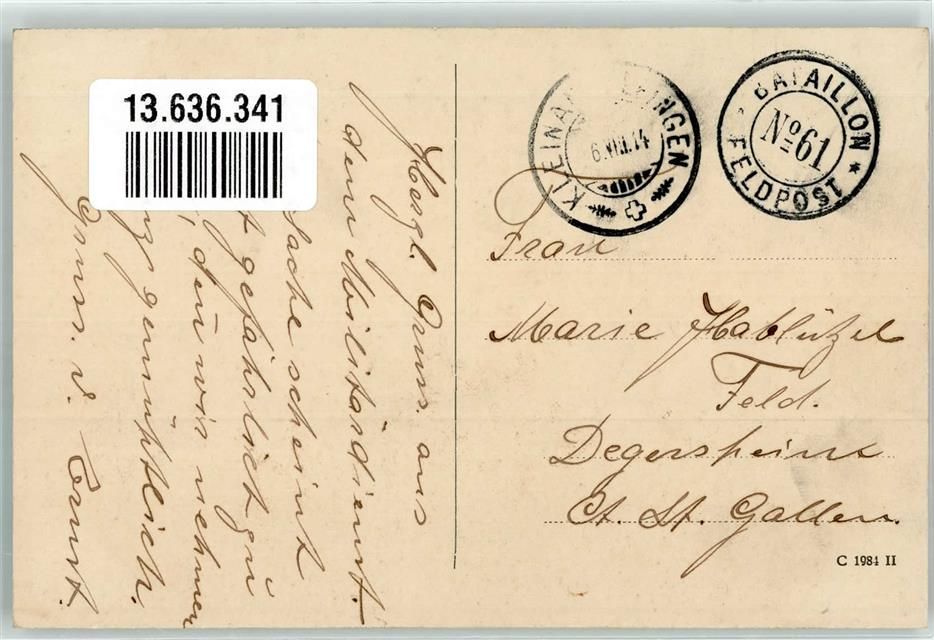 13.636.341
Herzl. Gruss. aus
dem Militärdienst.
sache scheint
gefährlich zu
, denn wir nehmen
gemütlich.
Gruss. v. Ernst.
KLEINAN INGEN
6.VIII.14
BATAILLON
No 61
* FELDPOST *
Frau
Marie Hablützel
Feld.
Degersheim
Ct. St. Gallen.
C 1984 II